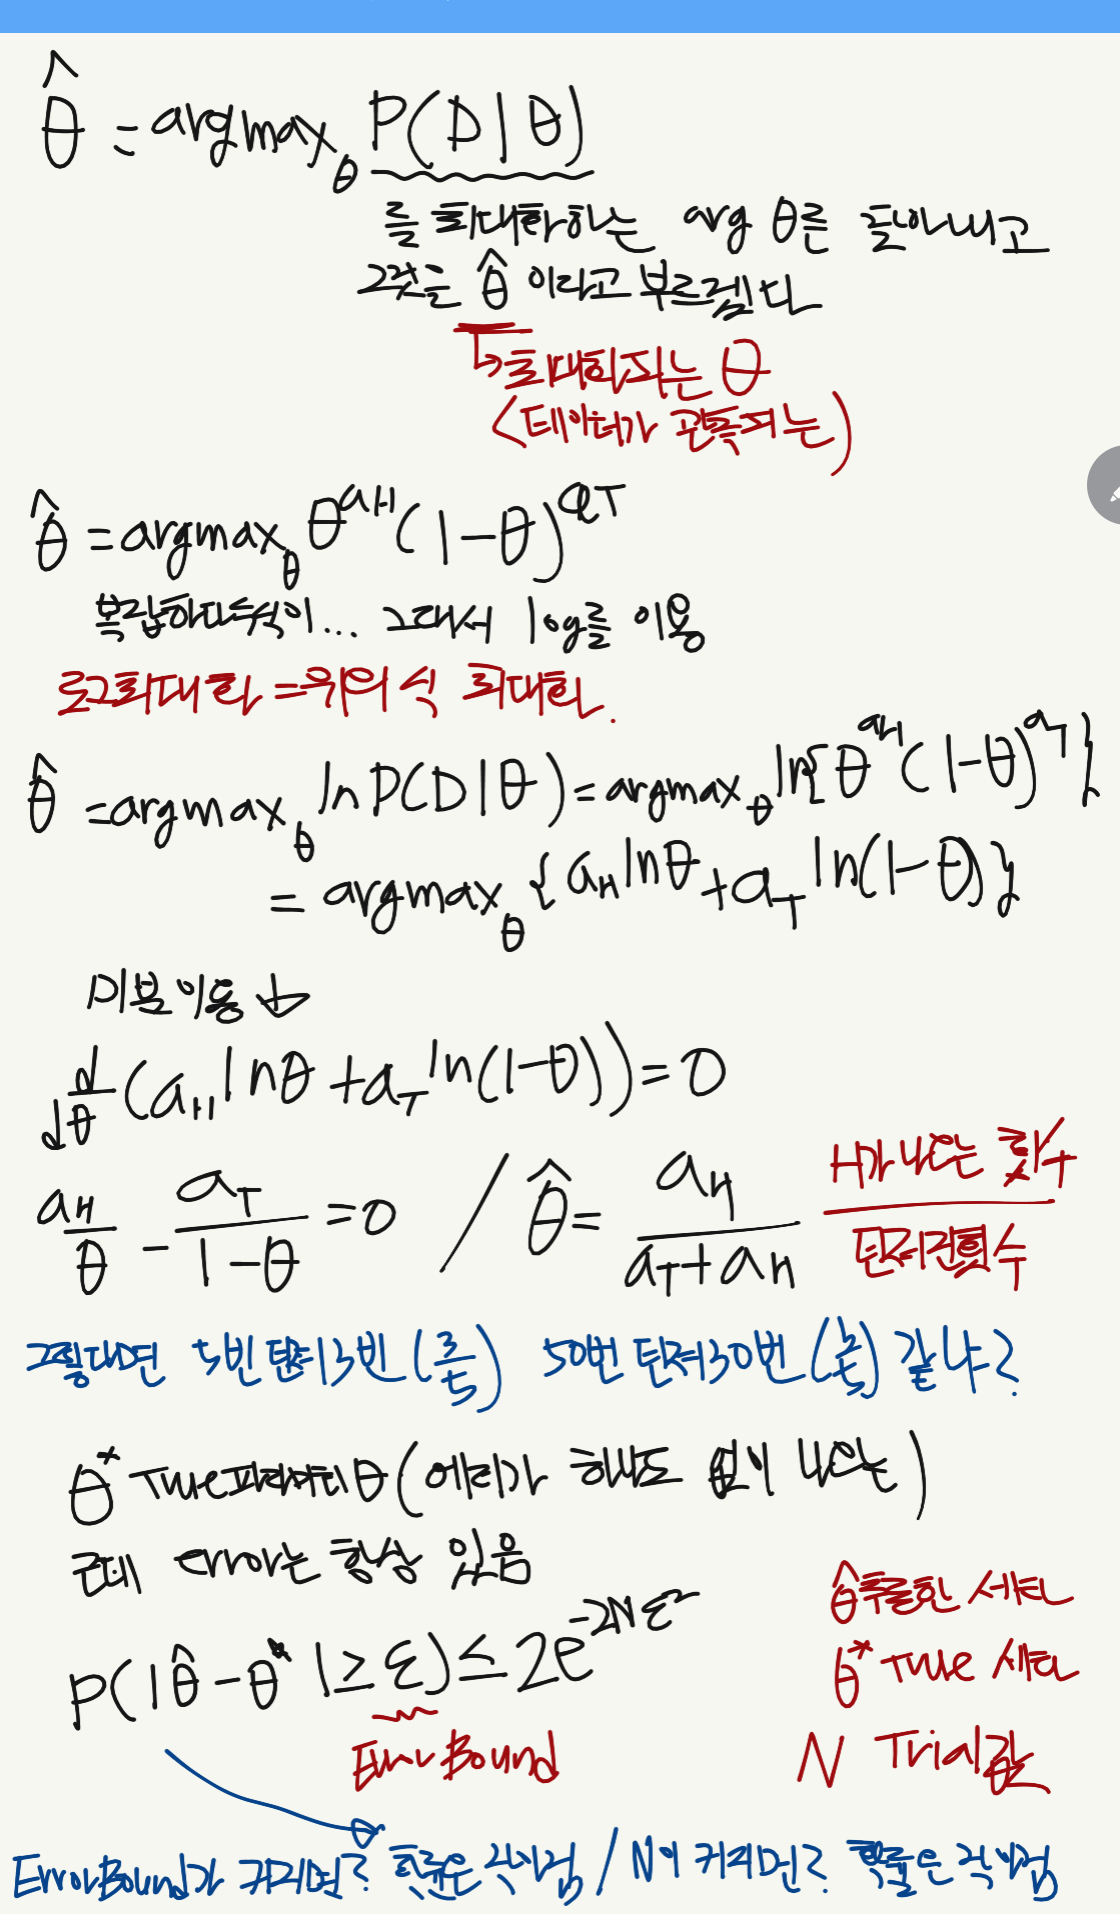 θ̂ = argmax_θ P(D|θ)
를 최대화하는 arg θ를 찾아내고
그것은 θ̂ 이라고 부르겠다
↳최대화되는 θ
(데이터가 관측되는)
θ̂ = argmax_θ θ^aH (1-θ)^aT
복잡하다 수식이... 그래서 log를 이용
로그최대화 = 위의 식 최대화.
θ̂ = argmax_θ ln P(D|θ) = argmax_θ ln{θ^aH (1-θ)^aT}
= argmax_θ {a_H lnθ + a_T ln(1-θ)}
미분 이용 ↓
d/dθ (a_H lnθ + a_T ln(1-θ)) = 0
a_H/θ - a_T/(1-θ) = 0 / θ̂ = a_H/(a_T + a_H) H가 나오는 횟수/던져진횟수
그렇다면 5번 던져 3번 (3/5) 50번 던져 30번 (3/5) 같냐?
θ* True파라메터 θ (에러가 하나도 없이 나오는)
근데 error는 항상 있음
θ̂ 추출한 세타
P(|θ̂ - θ*| ≥ ε) ≤ 2e^-2Nε²
θ* True 세타
Error Bound
N Trial값
ErrorBound가 커지면? 확률은 작아짐 / N이 커지면? 확률은 작아짐